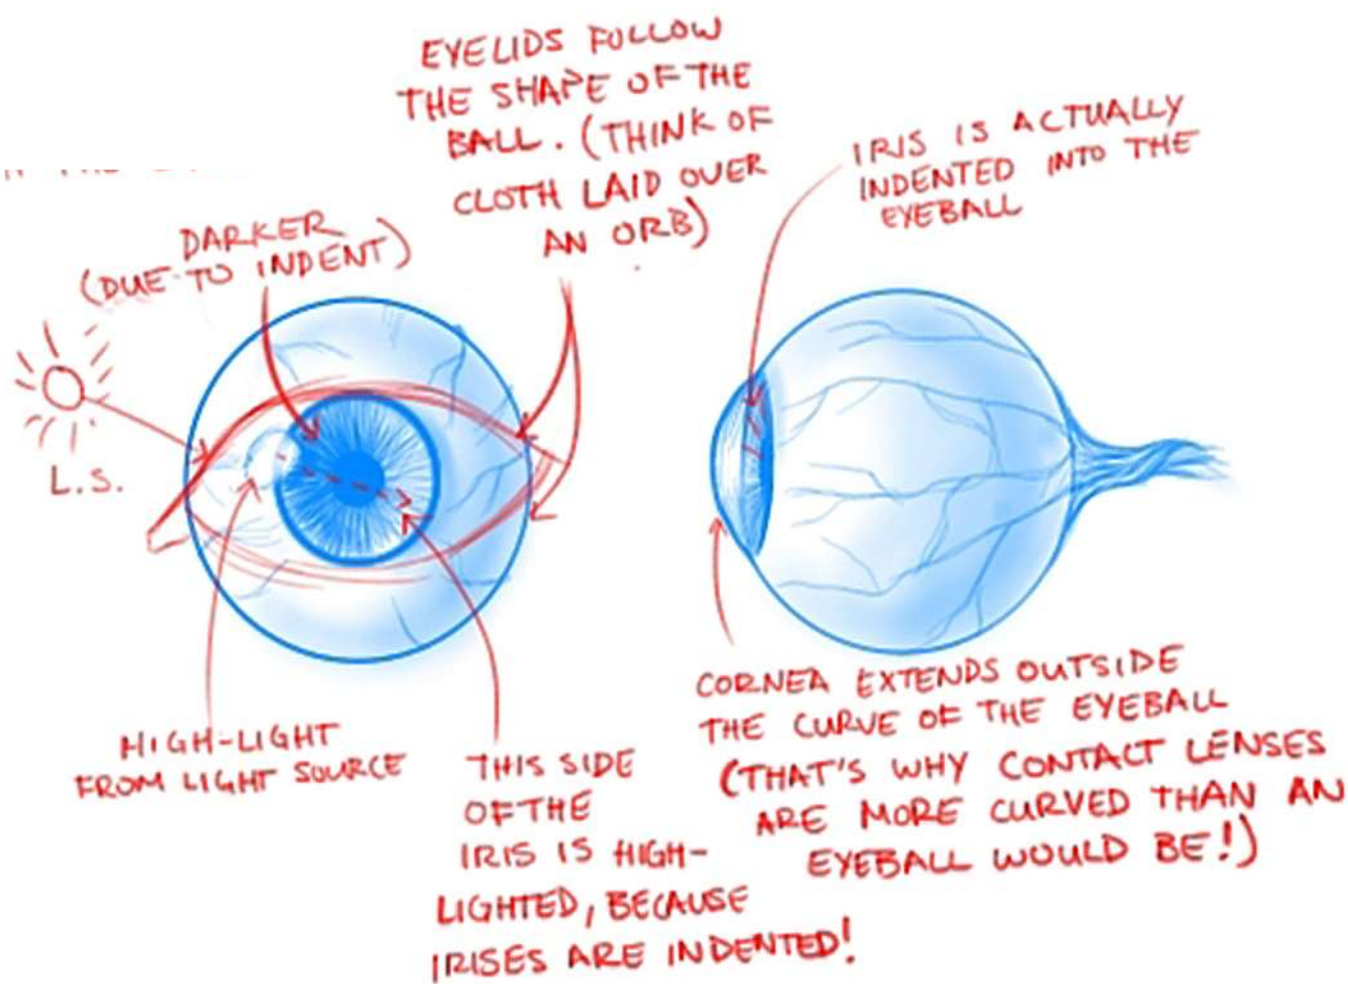 EYELIDS FOLLOW
THE SHAPE OF THE
BALL. (THINK OF
CLOTH LAID OVER
AN ORB)
IRIS IS ACTUALLY
INDENTED INTO THE
EYEBALL
DARKER
(DUE TO INDENT)
L.S.
HIGH-LIGHT
FROM LIGHT SOURCE
THIS SIDE
OF THE
IRIS IS HIGH-
LIGHTED, BECAUSE
IRISES ARE INDENTED!
CORNEA EXTENDS OUTSIDE
THE CURVE OF THE EYEBALL
(THAT'S WHY CONTACT LENSES
ARE MORE CURVED THAN AN
EYEBALL WOULD BE!)